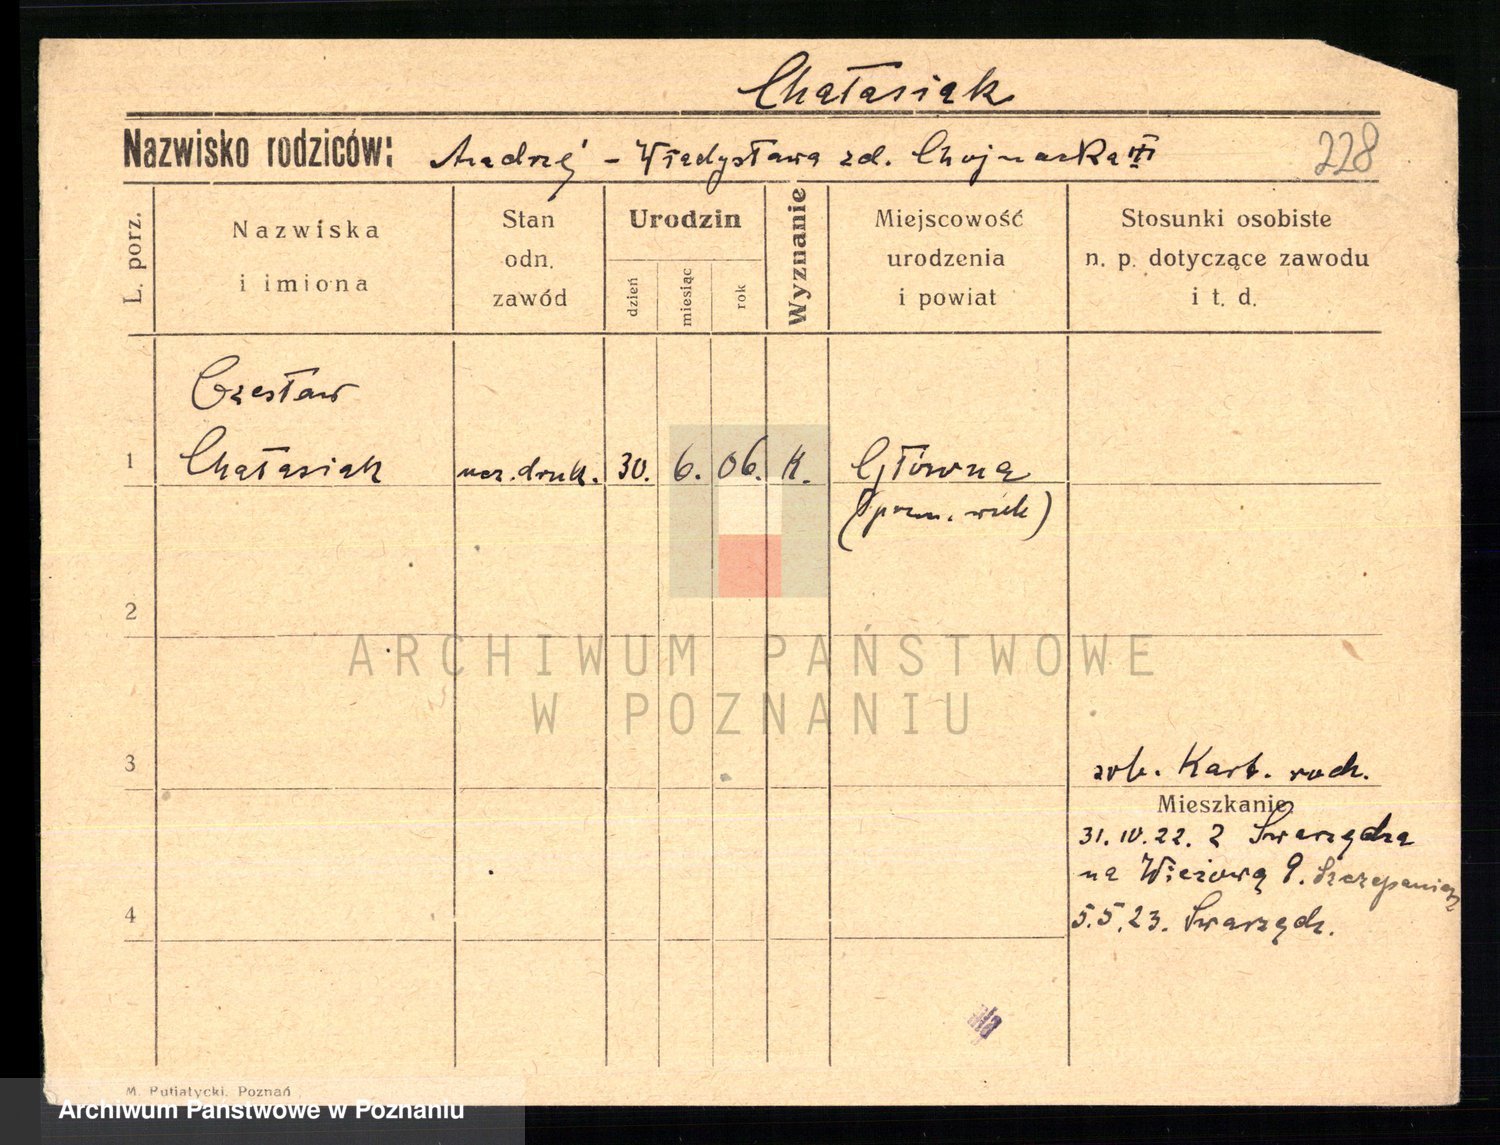 Chałasiak
Nazwisko rodziców: Andrzej - Władysława zd. Chojnacka
228
L. porz.
Nazwiska
i imiona
Stan
odn.
zawód
Urodzin
dzień
miesiąc
rok
Wyznanie
Miejscowość
urodzenia
i powiat
Stosunki osobiste
n. p. dotyczące zawodu
i t. d.
Czesław
1 Chałasiak ucz. druk. 30. 6. 06. K. Główna
2
3
zob. Kart. rodz.
Mieszkanie
31. 10. 22. z Swarzędza
na Wieżową 9.
4
5.5.23. Swarzędz.
ARCHIWUM PAŃSTWOWE
W POZNANIU
M. Putiatycki, Poznań
Archiwum Państwowe w Poznaniu